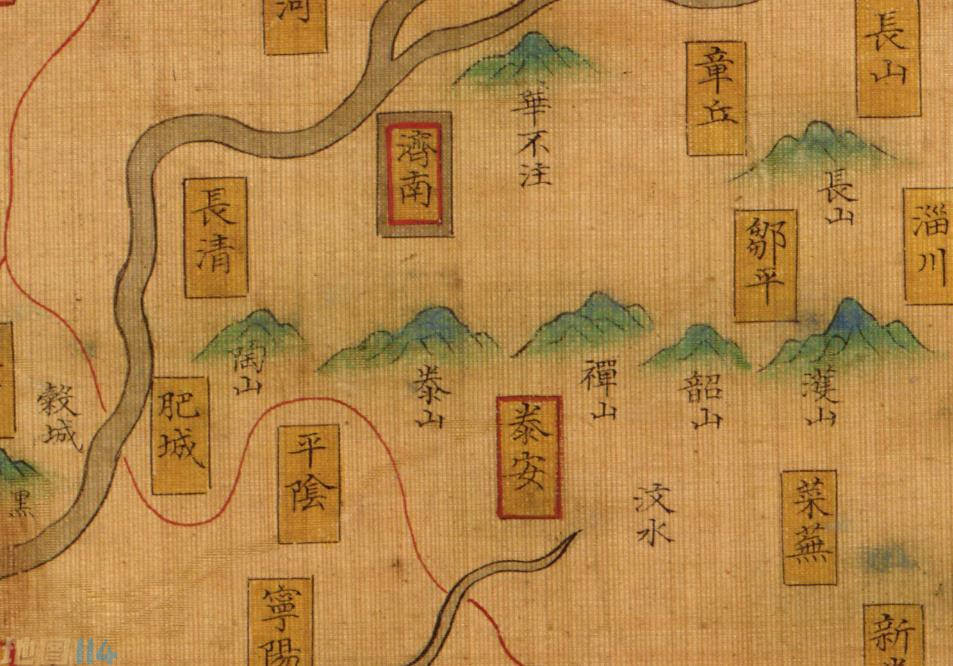 河
長山
章丘
華不注
濟南
長山
長清
淄川
鄒平
陶山
泰山
禪山
韶山
漢山
穀城
肥城
泰安
平陰
黑
汶水
菜蕪
寧陽
新
地圖114